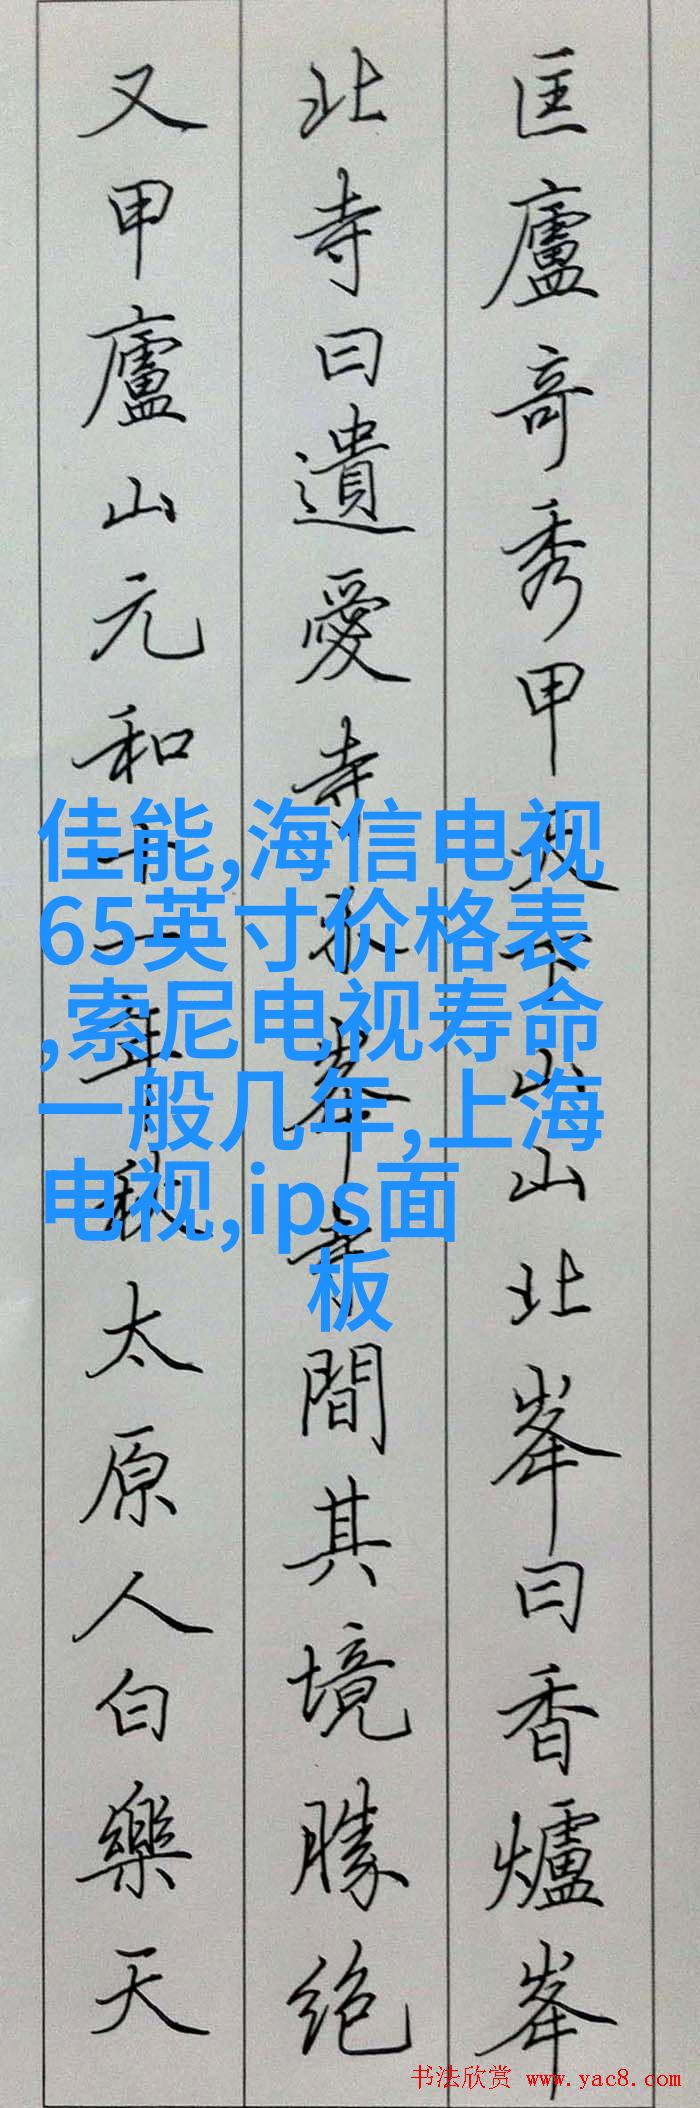 匡廬竒秀甲天下山山北峯曰香爐峯
北寺曰遺愛寺介峯寺間其境勝絶
又甲廬山元和十一年秋太原人白樂天
佳能,海信电视
65英寸价格表
,索尼电视寿命
一般几年,上海
电视,ips面
板
书法欣赏 www.yac8.com